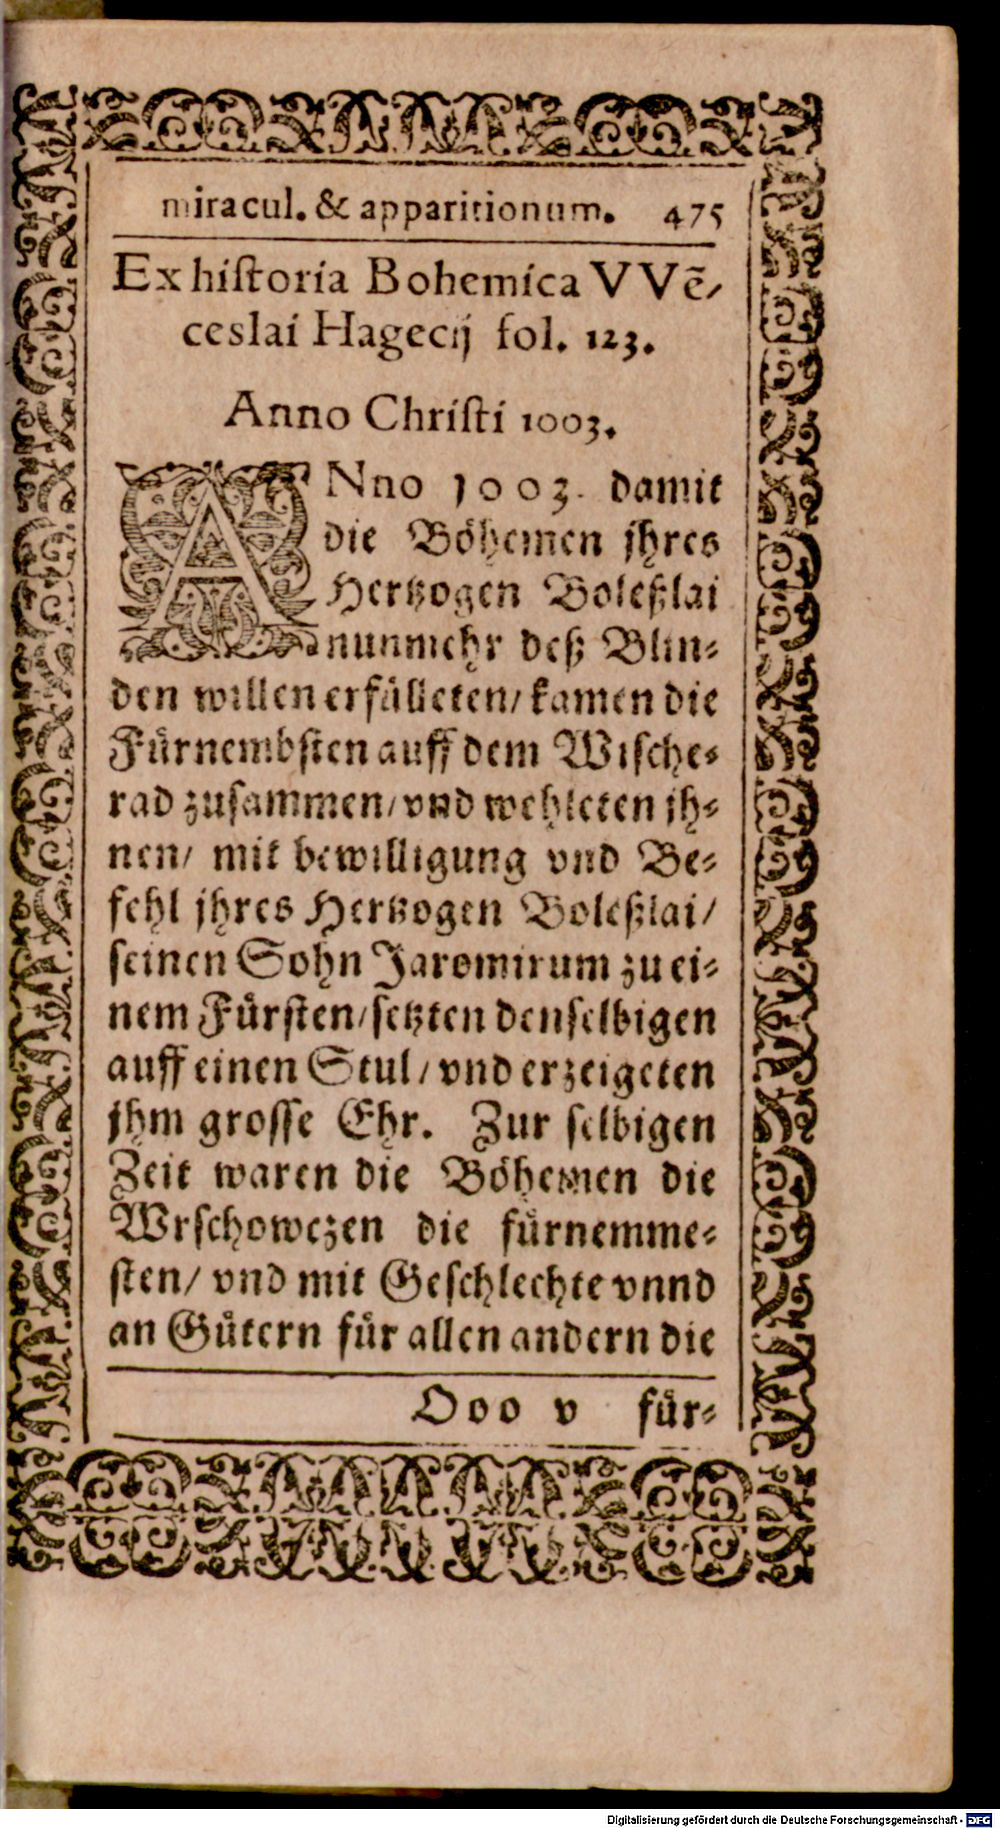 miracul. & apparitionum. 475
Ex historia Bohemica VVẽ-
ceslai Hagecij fol. 123.
Anno Christi 1003.
ANno 1003. damit
die Böhemen jhres
Hertzogen Boleßlai
nunmehr deß Blin-
den willen erfülleten/ kamen die
Fürnembsten auff dem Wische-
rad zusammen/ vnd wehleten jh-
nen/ mit bewilligung vnd Be-
fehl jhres Hertzogen Boleßlai/
seinen Sohn Jaromirum zu ei-
nem Fürsten/ setzten denselbigen
auff einen Stul/ vnd erzeigeten
jhm grosse Ehr. Zur selbigen
Zeit waren die Böhemen die
Wrschowczen die fürnemme-
sten/ vnd mit Geschlechte vnnd
an Gütern für allen andern die
Ooo v für-
Digitalisierung gefördert durch die Deutsche Forschungsgemeinschaft - DFG